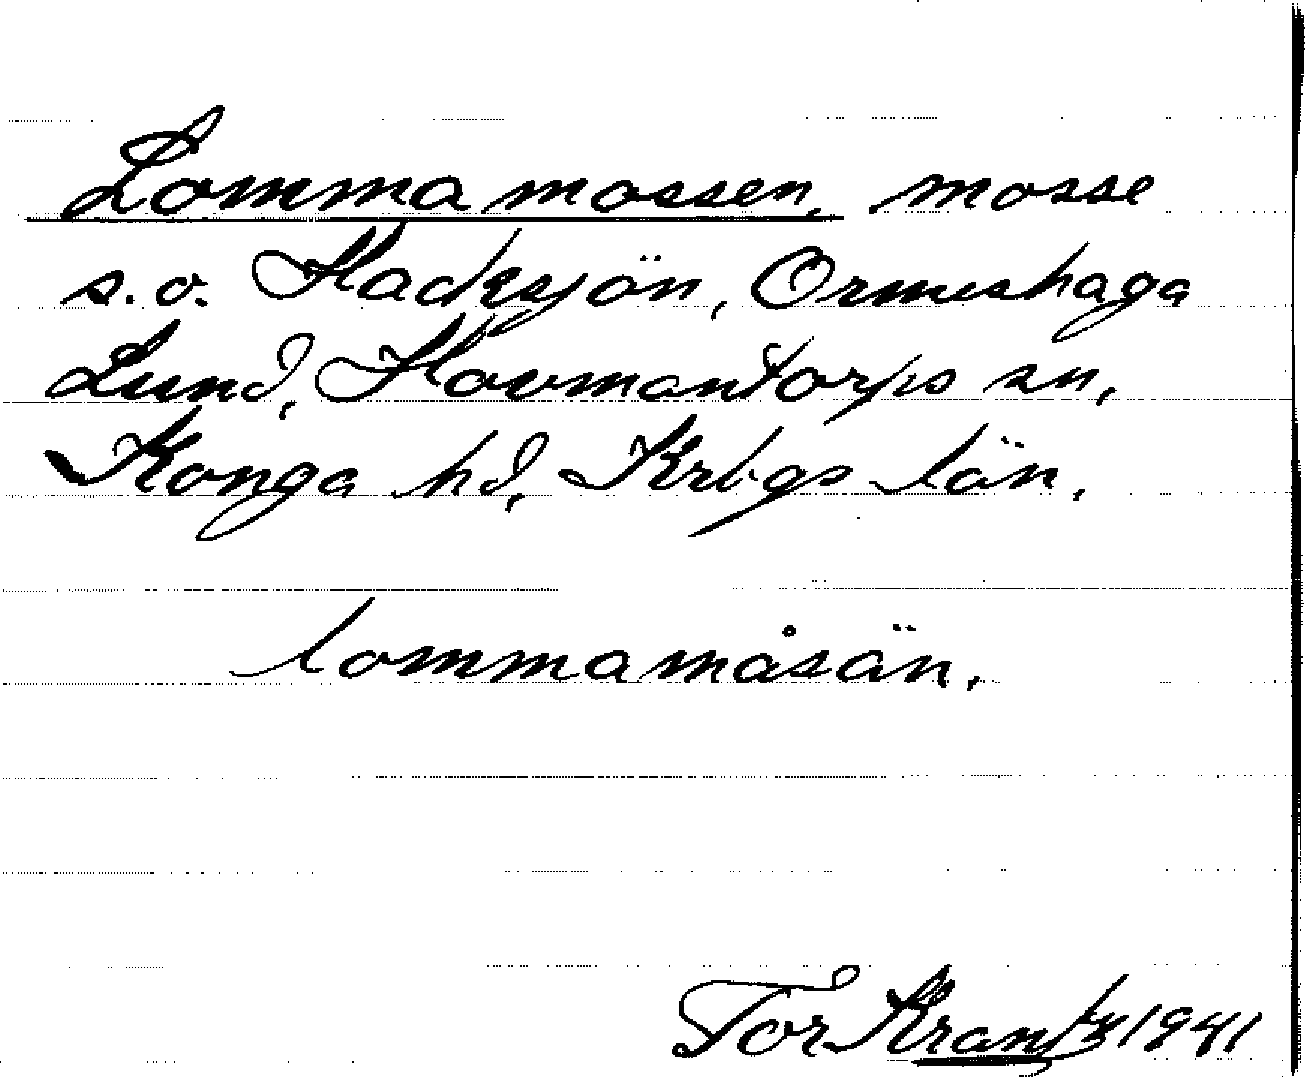 Lommamossen, mosse
s.o. Hacksjön, Ormeshaga
Lund, Hovmantorps sn,
Konga hd, Krbgs län.
lommamåsän.
Tor Krantz 1941